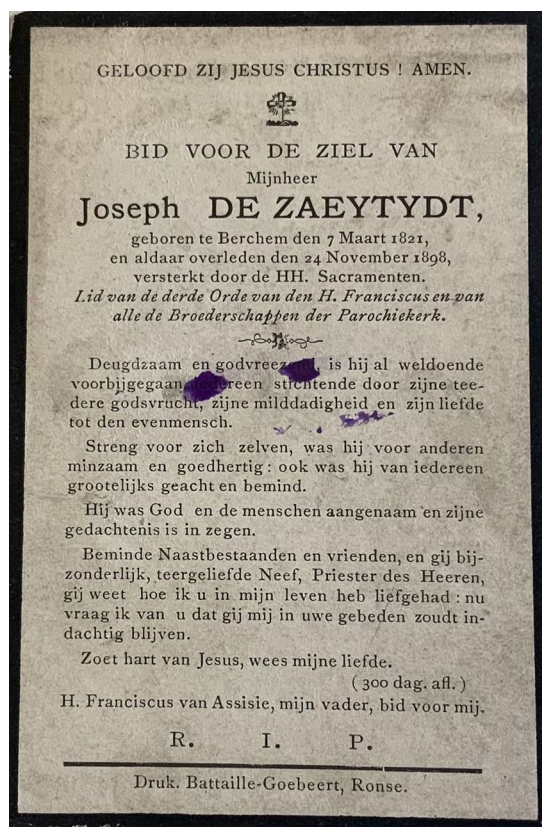 GELOOFD ZIJ JESUS CHRISTUS ! AMEN.
BID VOOR DE ZIEL VAN
Mijnheer
Joseph DE ZAEYTYDT,
geboren te Berchem den 7 Maart 1821,
en aldaar overleden den 24 November 1898,
versterkt door de HH. Sacramenten.
Lid van de derde Orde van den H. Franciscus en van
alle de Broederschappen der Parochiekerk.
Deugdzaam en godvreezend, is hij al weldoende
voorbijgegaan, iedereen stichtende door zijne tee-
dere godsvrucht, zijne milddadigheid en zijn liefde
tot den evenmensch.
Streng voor zich zelven, was hij voor anderen
minzaam en goedhertig : ook was hij van iedereen
grootelijks geacht en bemind.
Hij was God en de menschen aangenaam en zijne
gedachtenis is in zegen.
Beminde Naastbestaanden en vrienden, en gij bij-
zonderlijk, teergeliefde Neef, Priester des Heeren,
gij weet hoe ik u in mijn leven heb liefgehad : nu
vraag ik van u dat gij mij in uwe gebeden zoudt in-
dachtig blijven.
Zoet hart van Jesus, wees mijne liefde.
(300 dag. afl.)
H. Franciscus van Assisie, mijn vader, bid voor mij.
R. I. P.
Druk. Battaille-Goebeert, Ronse.